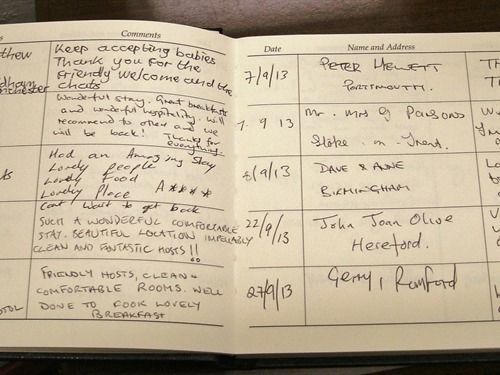 s
Comments
thew
dham
nchester
Keep accepting babies
Thank you for the
friendly welcome and the
chats
Wonderful stay. Great breakfasts
and wonderful hospitality. Will
recommend to other and we
will be back! Thanks for
everything
ts
Had an Amazing stay
Lovely people
Lovely food
Lovely Place A****
Cant wait to get back
SUCH A WONDERFUL COMFORTABLE
STAY. BEAUTIFUL LOCATION
CLEAN AND FANTASTIC HOSTS!!
TOL
FRIENDLY HOSTS, CLEAN +
COMFORTABLE ROOMS. WELL
DONE TO COOK LOVELY
BREAKFAST
Date
Name and Address
7/9/13
PETER HEWETT
PORTSMOUTH.
7. 9 13
Mr. Mrs G Parsons
Stoke. on. Trent.
8/9/13
DAVE & ANNE
BIRMINGHAM
22/9/13
John Joan Olive
Hereford.
27/9/13
Gerry, Romford